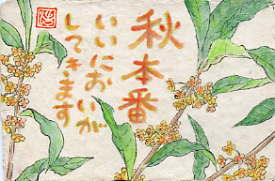 秋本番
いいにおいが
してきます